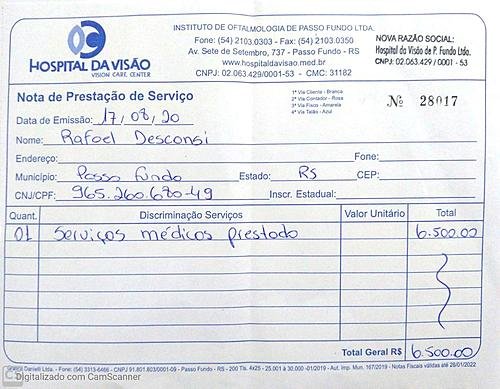 HOSPITAL DA VISÃO
VISION CARE CENTER
INSTITUTO DE OFTALMOLOGIA DE PASSO FUNDO LTDA.
Fone: (54) 2103.0303 - Fax: (54) 2103.0350
Av. Sete de Setembro, 737 - Passo Fundo - RS
www.hospitaldavisao.med.br
CNPJ: 02.063.429/0001-53 - CMC: 31182
NOVA RAZÃO SOCIAL:
Hospital da Visão de P. Fundo Ltda.
CNPJ: 02.063.429 / 0001 - 53
Nota de Prestação de Serviço
1ª Via Cliente - Branca
2ª Via Contador - Rosa
3ª Via Fisco - Amarela
4ª Via Talão - Azul
Nº 28017
Data de Emissão: 17/08/20
Nome: Rafael Desconsi
Endereço: Fone:
Município: Passo Fundo Estado: RS CEP:
CNJ/CPF: 965.260.680-49 Inscr. Estadual:
Quant. Discriminação Serviços Valor Unitário Total
01 Serviços médicos prestado 6.500.00
Total Geral R$ 6.500.00
Danielli Ltda. - Fone: (54) 3313-6466 - CNPJ 91.801.803/0001-09 - Passo Fundo - RS - 200 Tls. 4x25 - 25.001 à 30.000 - 01/2019 - Aut. Imp. Mun. 167/2019 - Notas Fiscais válidas até 26/01/2022
CS Digitalizado com CamScanner